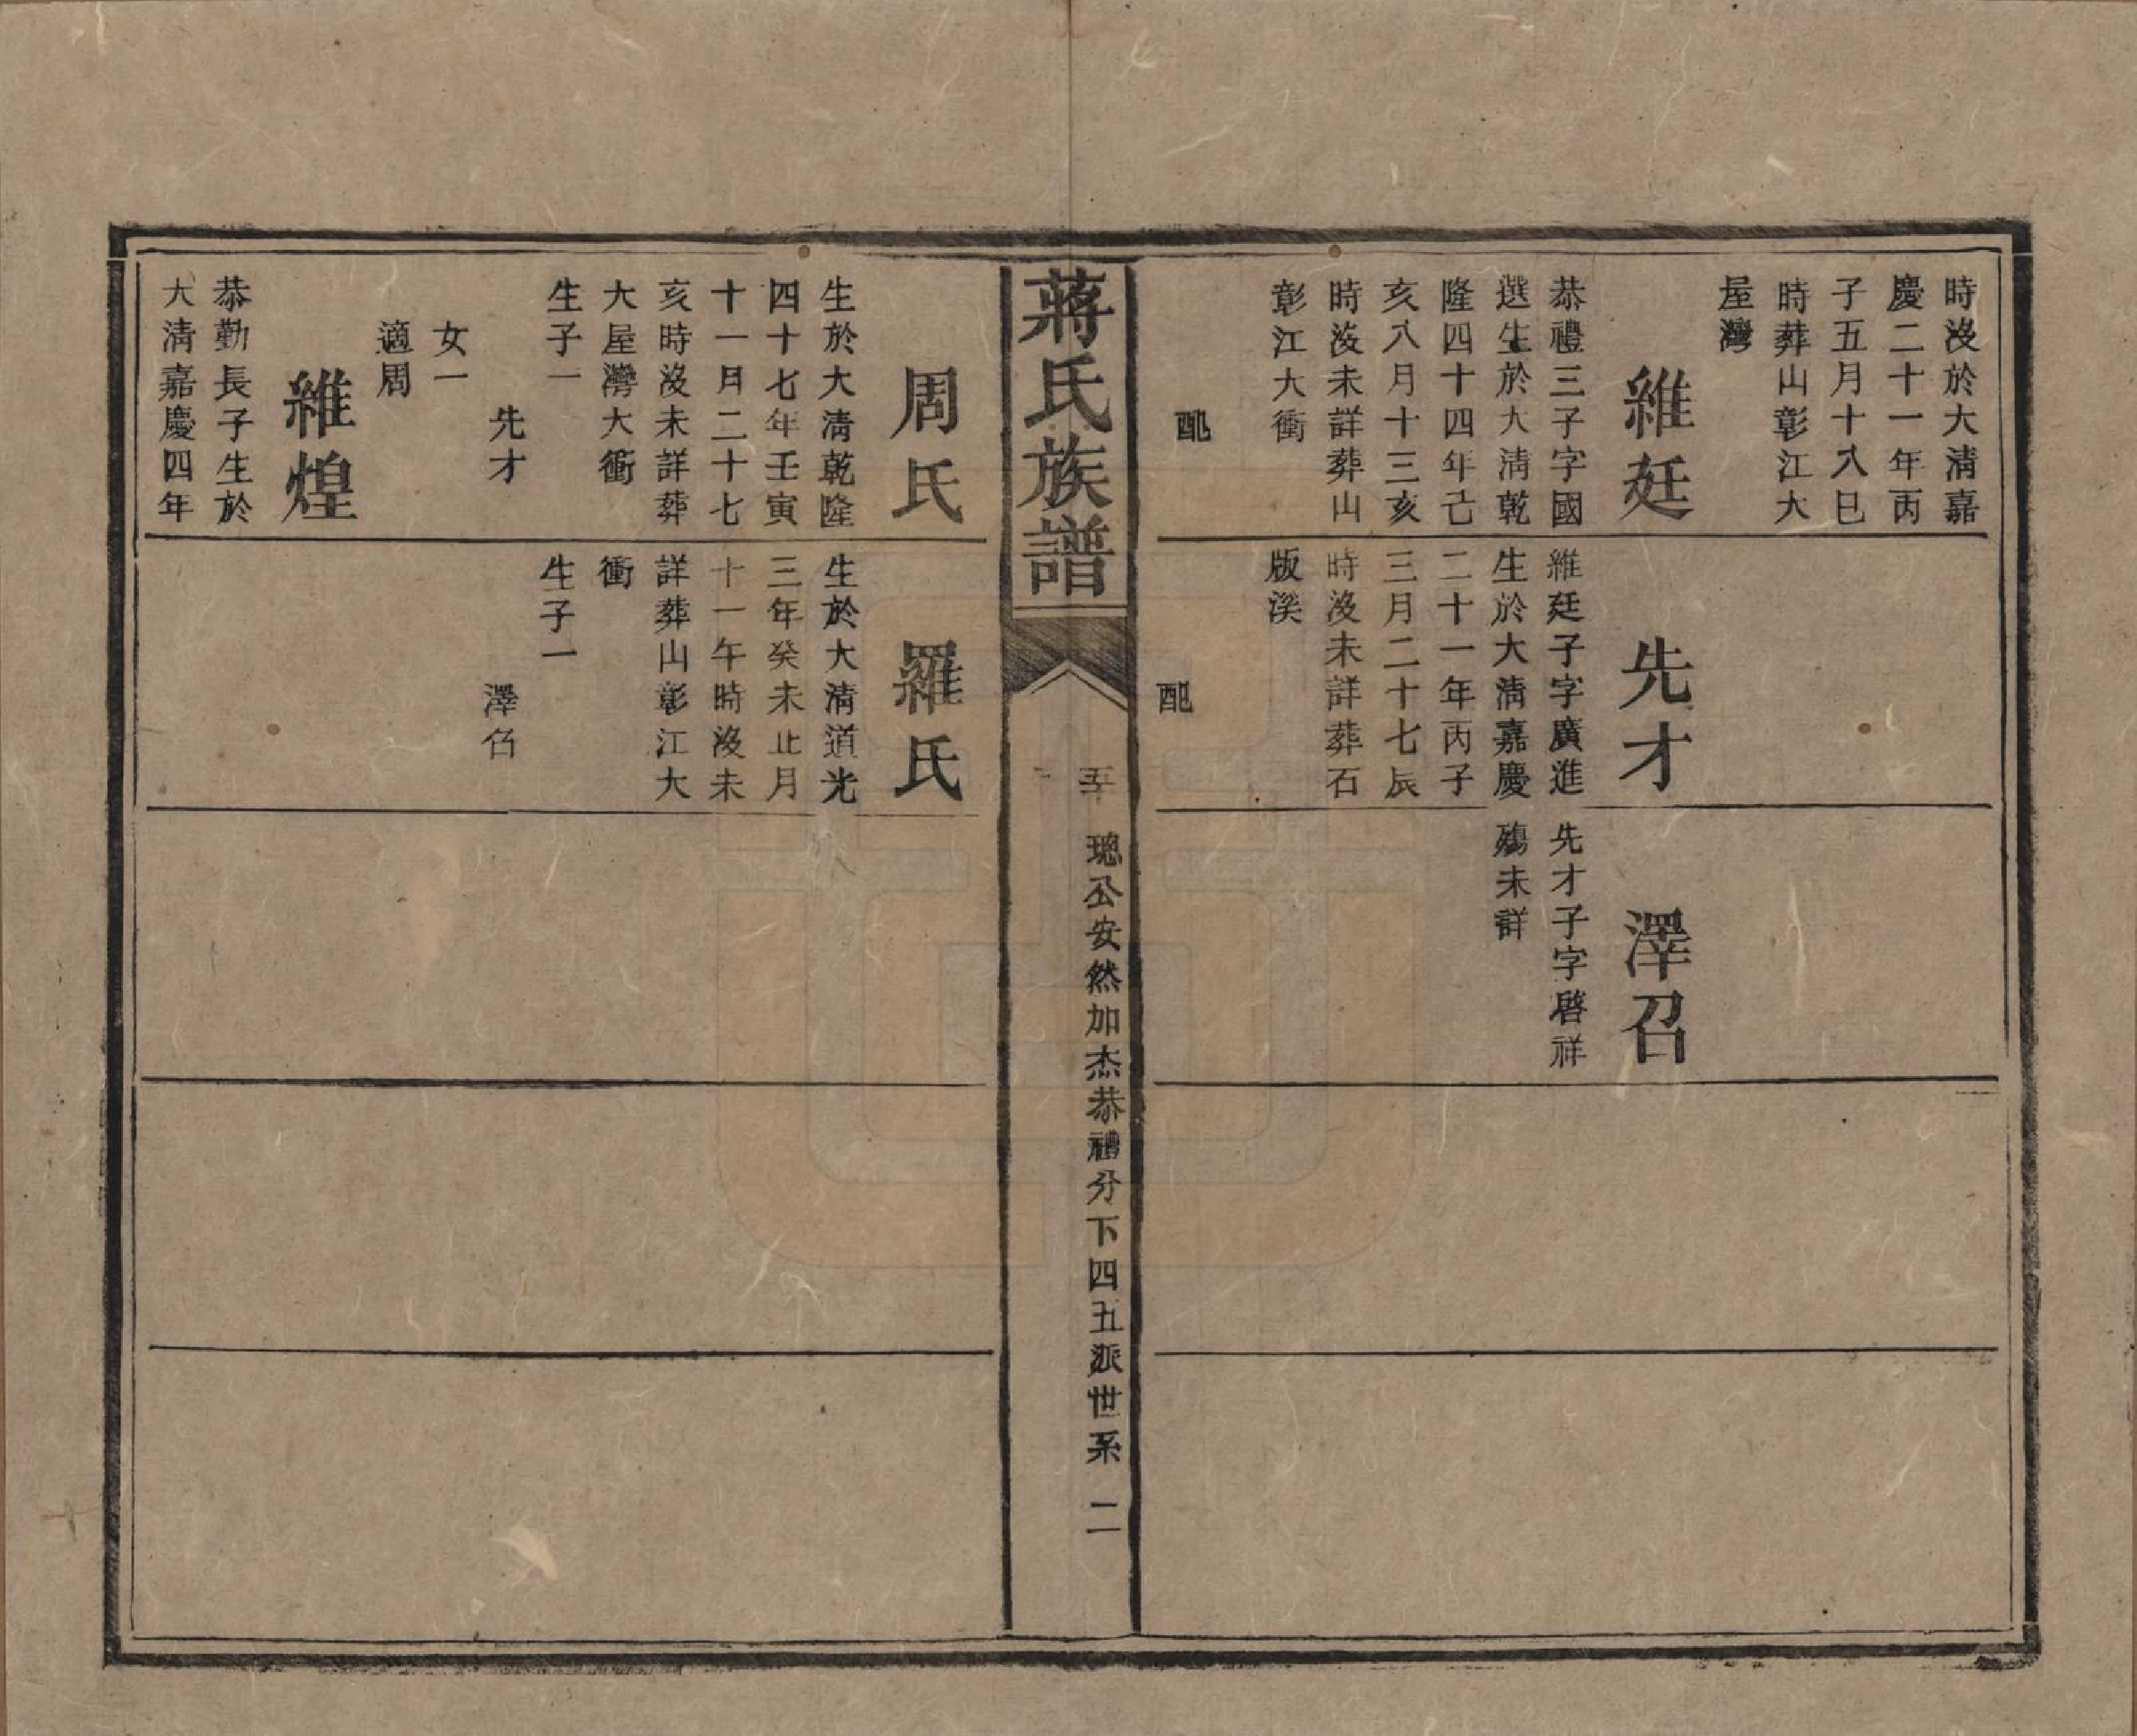 時沒於大清嘉
慶二十一年丙
子五月十八巳
時葬山彰江大
屋灣
維廷
恭禮三子字國
選生於大清乾
隆四十四年己
亥八月十三亥
時沒未詳葬山
彰江大衝
配
先才
維廷子字廣進
生於大清嘉慶
二十一年丙子
三月二十七辰
時沒未詳葬石
版溪
配
澤召
先才子字啓祥
殤未詳
蔣氏族譜
五十一
璁公安然加杰恭禮分下四五派世系 二
周氏
生於大清乾隆
四十七年壬寅
十一月二十七
亥時沒未詳葬
大屋灣大衝
生子一
先才
女一
適周
維煌
恭勤長子生於
大清嘉慶四年
羅氏
生於大清道光
三年癸未正月
十一午時沒未
詳葬山彰江大
衝
生子一
澤召